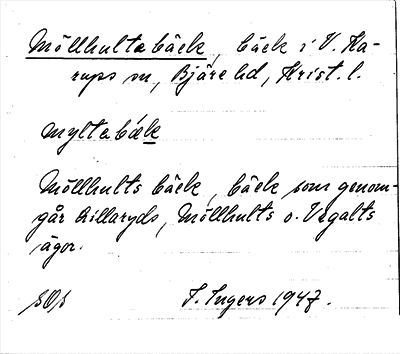 Möllhultabäck, bäck i V. Ka-
rups sn, Bjäre hd, Krist. l.
myltabæk
Möllhults bäck, bäck som genom-
går Killaryds, Möllhults o. Vegalts
ägor.
I. Ingers 1947.